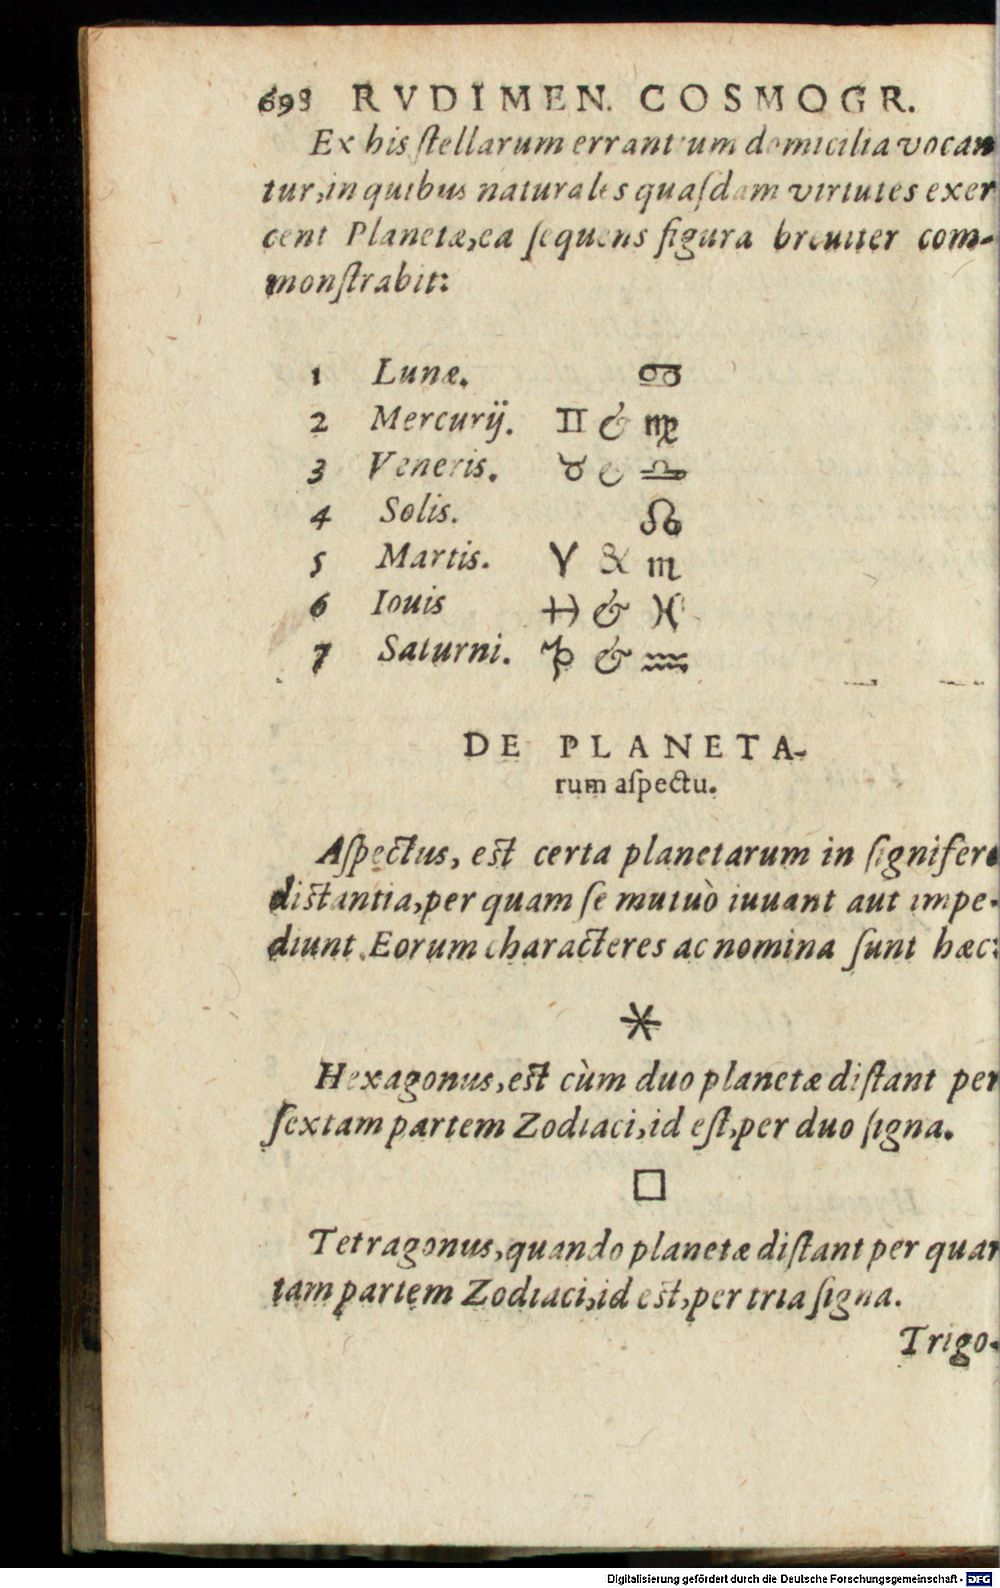 698 RVDIMEN. COSMOGR.
Ex his ſtellarum errantium domicilia vocan
tur, in quibus naturales quaſdam virtutes exer
cent Planetæ, ea ſequens figura breuiter com-
monſtrabit:
1 Lunæ. ♋
2 Mercurij. ♊ & ♍
3 Veneris. ♉ & ♎
4 Solis. ♌
5 Martis. ♈ & ♏
6 Iouis ♐ & ♓
7 Saturni. ♑ & ♒
DE PLANETA-
rum aſpectu.
Aſpectus, est certa planetarum in ſignifero
distantia, per quam ſe mutuò iuuant aut impe-
diunt. Eorum characteres ac nomina ſunt hæc:
⚹
Hexagonus, est cùm duo planetæ diſtant per
ſextam partem Zodiaci, id eſt, per duo ſigna.
□
Tetragonus, quando planetæ diſtant per quar
tam partem Zodiaci, id est, per tria ſigna.
Trigo-
Digitalisierung gefördert durch die Deutsche Forschungsgemeinschaft - DFG